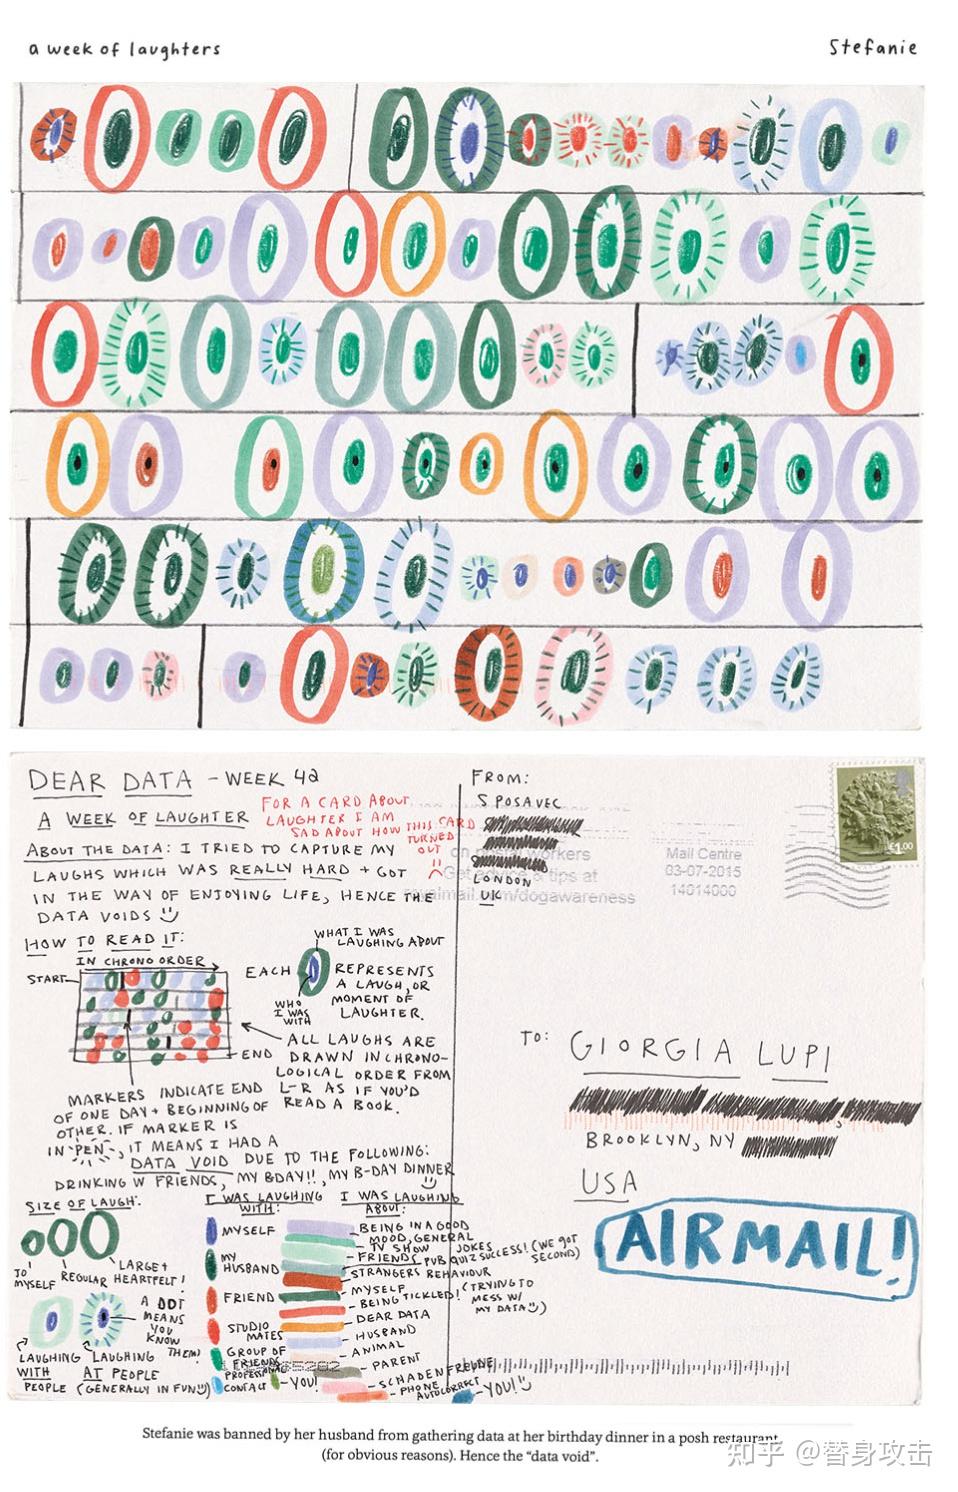 a week of laughters
Stefanie
DEAR DATA - WEEK 42
A WEEK OF LAUGHTER
FOR A CARD ABOUT
LAUGHTER I AM
SAD ABOUT HOW THIS CARD
TURNED
OUT
ABOUT THE DATA: I TRIED TO CAPTURE MY
LAUGHS WHICH WAS REALLY HARD + GOT
IN THE WAY OF ENJOYING LIFE, HENCE THE
DATA VOIDS
HOW TO READ IT:
IN CHRONO ORDER
START
END
WHAT I WAS
LAUGHING ABOUT
EACH REPRESENTS
A LAUGH, OR
MOMENT OF
LAUGHTER.
WHO
I WAS
WITH
ALL LAUGHS ARE
DRAWN IN CHRONO-
LOGICAL ORDER FROM
L-R AS IF YOU'D
READ A BOOK.
MARKERS INDICATE END
OF ONE DAY + BEGINNING OF
OTHER. IF MARKER IS
IN "PEN", IT MEANS I HAD A
DATA VOID DUE TO THE FOLLOWING:
DRINKING W FRIENDS, MY BDAY!!, MY B-DAY DINNER
SIZE OF LAUGH:
TO
MYSELF
REGULAR
LARGE +
HEARTFELT!
A DOT
MEANS
YOU
KNOW
THEM!
LAUGHING
WITH
PEOPLE
LAUGHING
AT PEOPLE
(GENERALLY IN FUN)
I WAS LAUGHING
WITH:
MYSELF
MY
HUSBAND
FRIEND
STUDIO
MATES
GROUP OF
FRIENDS
PROFESSIONAL
CONTACT
YOU!
I WAS LAUGHING
ABOUT:
BEING IN A GOOD
MOOD, GENERAL
TV SHOW
JOKES
FRIENDS
PUB QUIZ SUCCESS! (WE GOT
SECOND)
STRANGERS BEHAVIOUR
MYSELF
(TRYING TO
MESS W/
MY DATA)
BEING TICKLED!
DEAR DATA
HUSBAND
ANIMAL
PARENT
SCHADENFREUDE
PHONE
AUTOCORRECT
YOU!
FROM:
S POSAVEC
LONDON
UK
on workers
Get advice & tips at
royalmail.com/dogawareness
Mail Centre
03-07-2015
14014000
£1.00
TO:
GIORGIA LUPI
BROOKLYN, NY
USA
AIRMAIL!
Stefanie was banned by her husband from gathering data at her birthday dinner in a posh restaurant
(for obvious reasons). Hence the “data void”.
知乎 @替身攻击